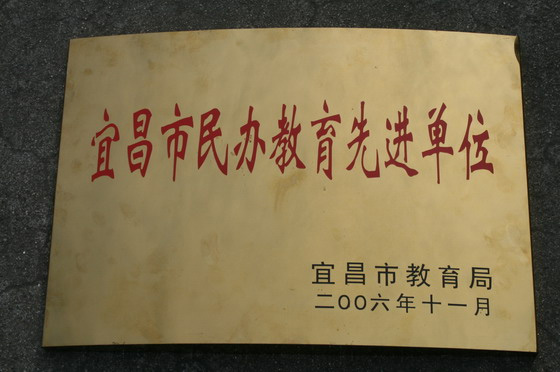 宜昌市民办教育先进单位
宜昌市教育局
二〇〇六年十一月